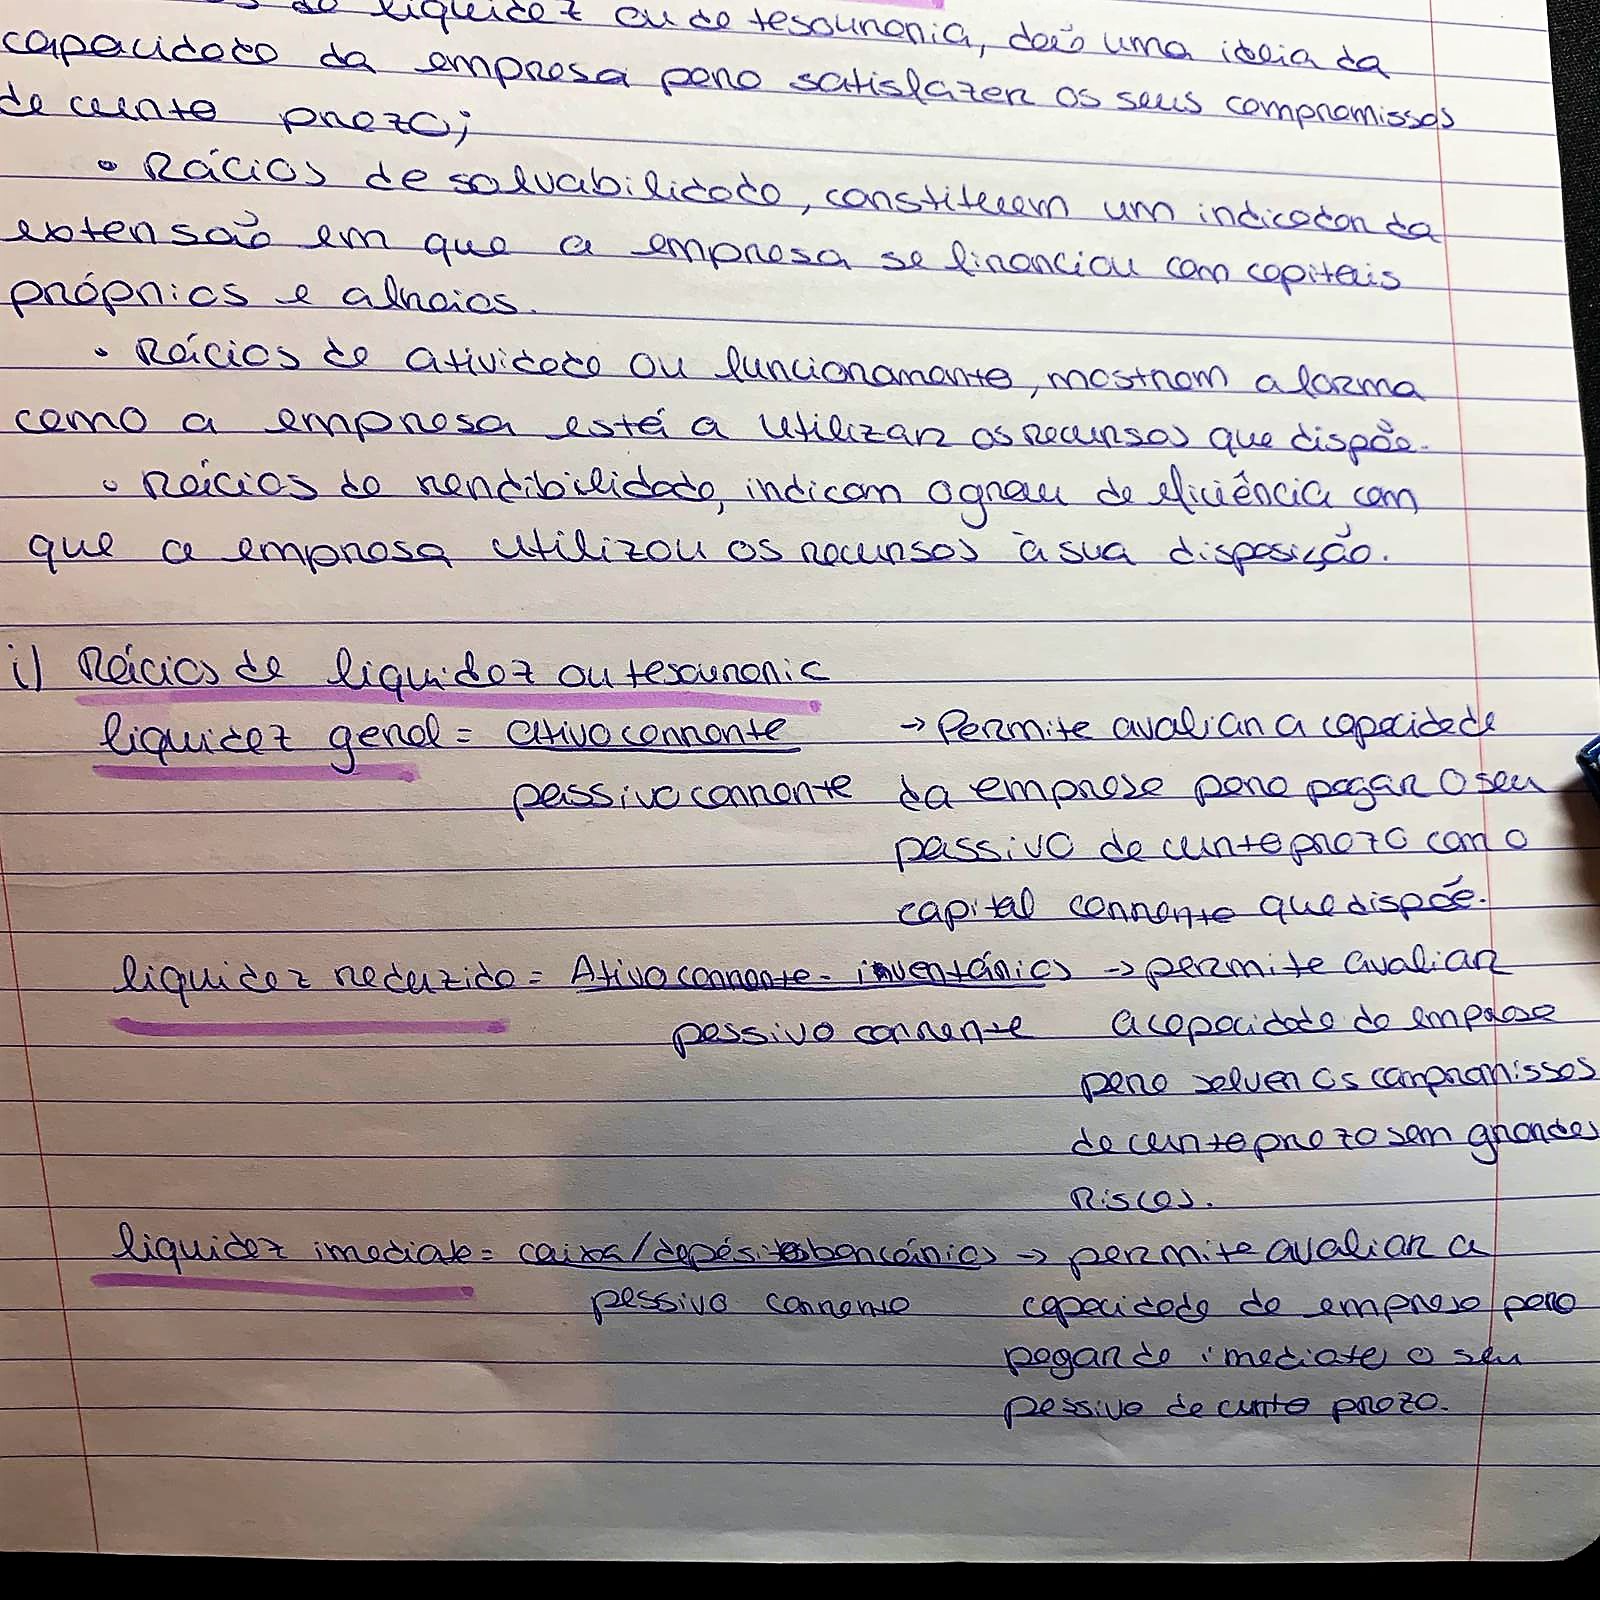 de liquidez ou de tesouraria, dão uma ideia da
capacidade da empresa para satisfazer os seus compromissos
de curto prazo;
• Rácios de solvabilidade, constituem um indicador da
extensão em que a empresa se financiou com capitais
próprios e alheios.
• Rácios de atividade ou funcionamento, mostram a forma
como a empresa está a utilizar os recursos que dispõe.
• Rácios de rendibilidade, indicam o grau de eficiência com
que a empresa utilizou os recursos à sua disposição.
i) Rácios de liquidez ou tesouraria
liquidez geral = ativo corrente → Permite avaliar a capacidade
passivo corrente da empresa para pagar o seu
passivo de curto prazo com o
capital corrente que dispõe.
liquidez reduzida = Ativo corrente - inventários → permite avaliar
passivo corrente a capacidade da empresa
para solver os compromissos
de curto prazo sem grandes
riscos.
liquidez imediata = caixa/depósitos bancários → permite avaliar a
passivo corrente capacidade da empresa para
pagar de imediato o seu
passivo de curto prazo.